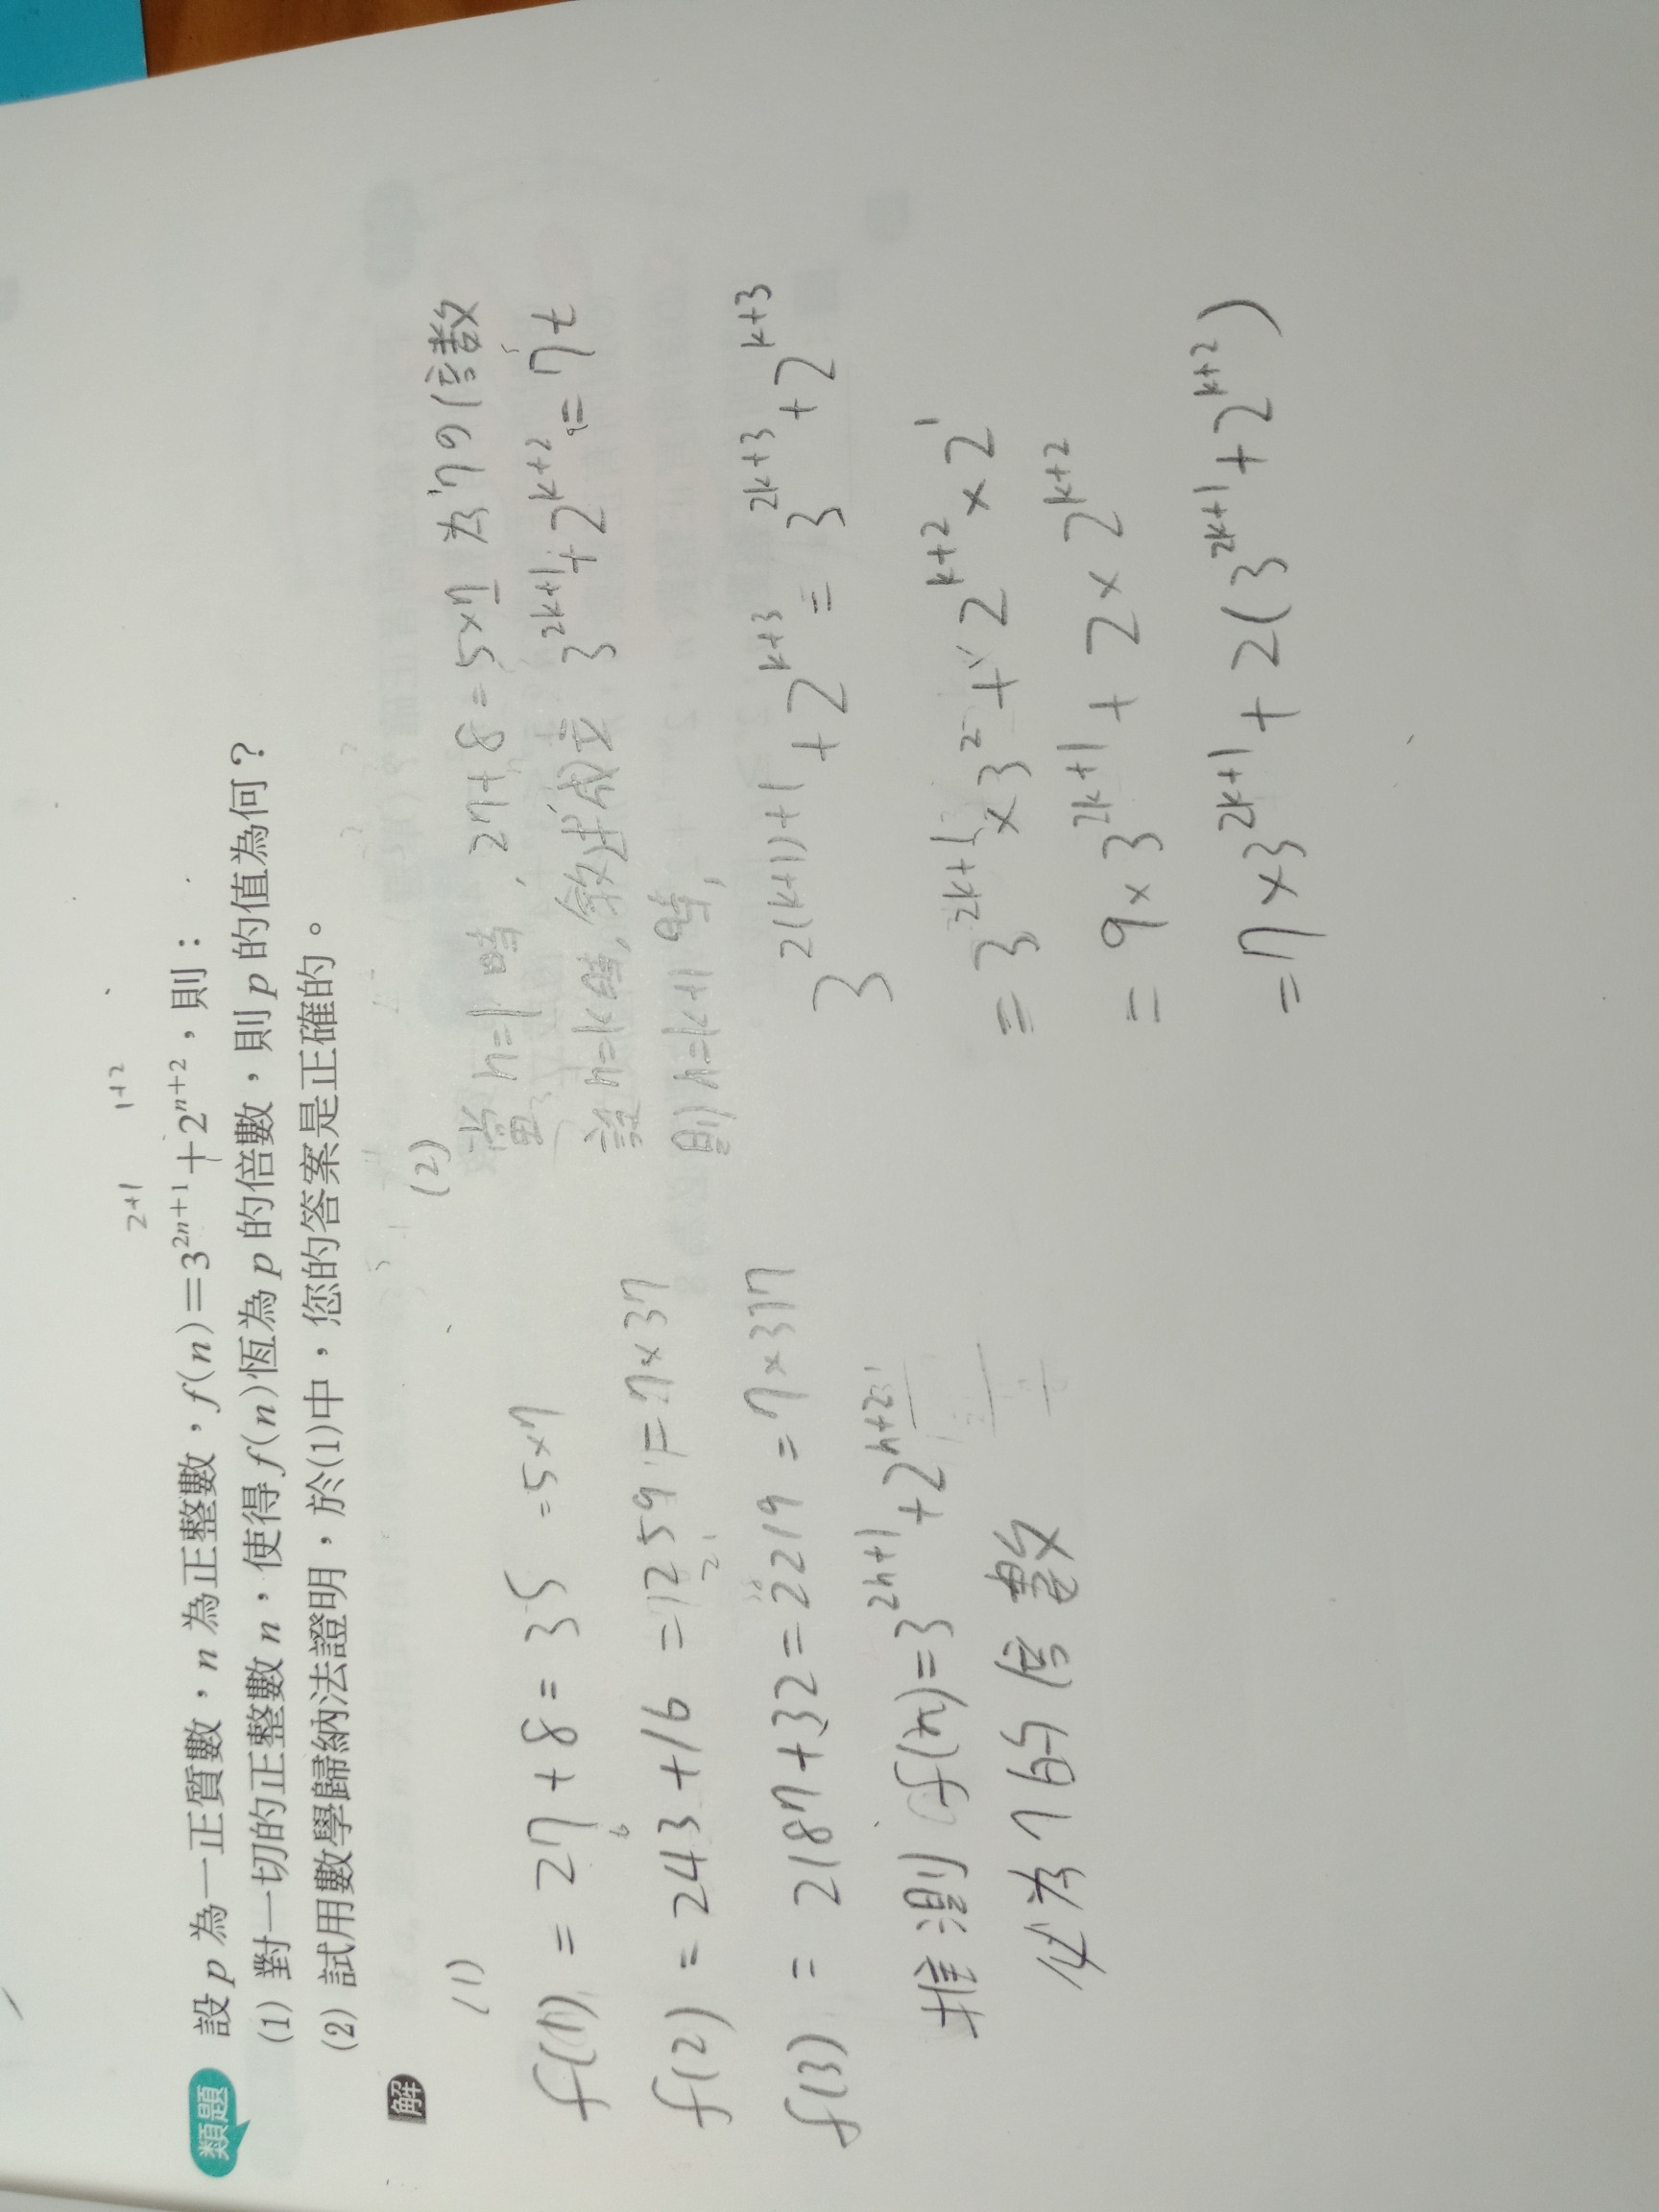 類題 設 p 為一正質數，n 為正整數，f(n)=3^{2n+1}+2^{n+2}，則：
2+1 1+2
(1) 對一切的正整數 n，使得 f(n) 恆為 p 的倍數，則 p 的值為何？
(2) 試用數學歸納法證明，於(1)中，您的答案是正確的。
解
(1)
f(1) = 27+8=35 =5×7
f(2) =243+16 =259 =7×37
f(3) = 2187+32=2219 =7×317
推測 f(n)=3^{2n+1}+2^{n+2}
必為7的倍數
(2)
當 n=1 時, 27+8=5×7 為7の倍数
設 n=k時, 敘述成立 3^{2k+1}+2^{k+2}=7t
則 n=k+1 時,
3^{2(k+1)+1}+2^{k+3}=3^{2k+3}+2^{k+3}
=3^{2k+1}×3^2+2^{k+2}×2^1
=9×3^{2k+1}+2×2^{k+2}
=7×3^{2k+1}+2(3^{2k+1}+2^{k+2})